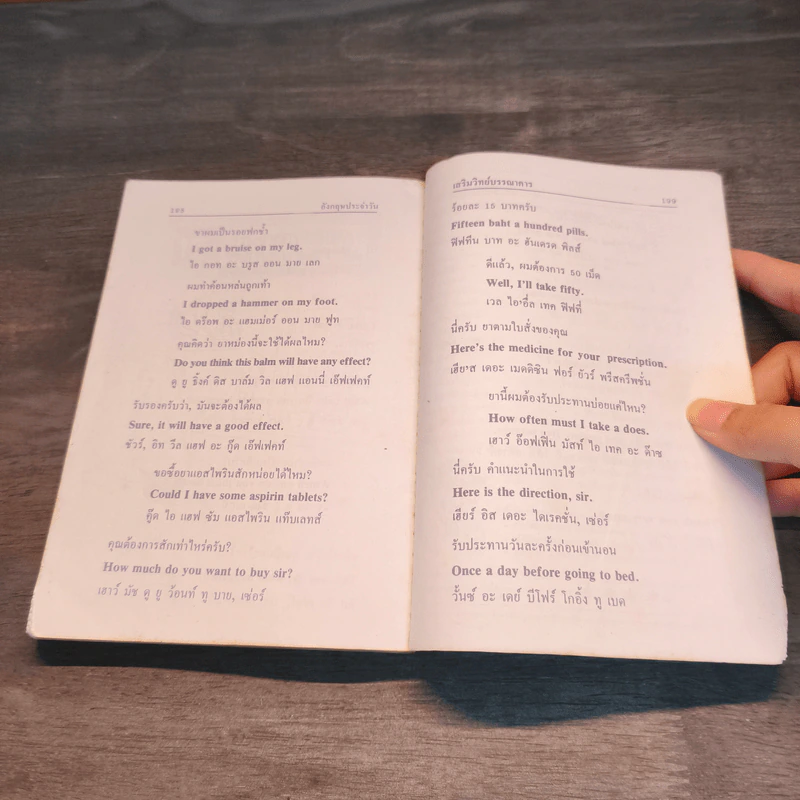 อังกฤษประจำวัน
ขาผมเป็นรอยฟกช้ำ
I got a bruise on my leg.
ไอ กอท อะ บรูส ออน มาย เลก
ผมทำค้อนหล่นถูกเท้า
I dropped a hammer on my foot.
ไอ ดร๊อพ อะ แฮมเม่อร์ ออน มาย ฟูท
คุณคิดว่า ยาหม่องนี้จะใช้ได้ผลไหม?
Do you think this balm will have any effect?
ดู ยู ธิ้งค์ ดิส บาล์ม วิล แฮฟ แอนนี่ เอ๊ฟเฟคท์
รับรองครับว่า, มันจะต้องได้ผล
Sure, it will have a good effect.
ชัวร์, อิท วีล แฮฟ อะ กู๊ด เอ๊ฟเฟคท์
ขอซื้อยาแอสไพรินสักหน่อยได้ไหม?
Could I have some aspirin tablets?
คู๊ด ไอ แฮฟ ซัม แอสไพริน แท๊บเลทส์
คุณต้องการสักเท่าไหร่ครับ?
How much do you want to buy sir?
เฮาว์ มัช ดู ยู ว้อนท์ ทู บาย, เซ่อร์
เสริมวิทย์บรรณาคาร
199
ร้อยละ 15 บาทครับ
Fifteen baht a hundred pills.
ฟิฟทีน บาท อะ ฮันเดรด พิลส์
ดีแล้ว, ผมต้องการ 50 เม็ด
Well, I'll take fifty.
เวล ไอ'อึ้ล เทค ฟิฟที่
นี่ครับ ยาตามใบสั่งของคุณ
Here's the medicine for your prescription.
เฮีย'ส เดอะ เมดดิซิน ฟอร์ ยัวร์ พรีสครีพชั่น
ยานี้ผมต้องรับประทานบ่อยแค่ไหน?
How often must I take a does.
เฮาว์ อ๊อฟเฟิ่น มัสท์ ไอ เทค อะ ด๊าซ
นี่ครับ คำแนะนำในการใช้
Here is the direction, sir.
เฮียร์ อิส เดอะ ไดเรคชั่น, เซ่อร์
รับประทานวันละครั้งก่อนเข้านอน
Once a day before going to bed.
วั้นซ์ อะ เดย์ บีโฟร์ โกอิ้ง ทู เบด